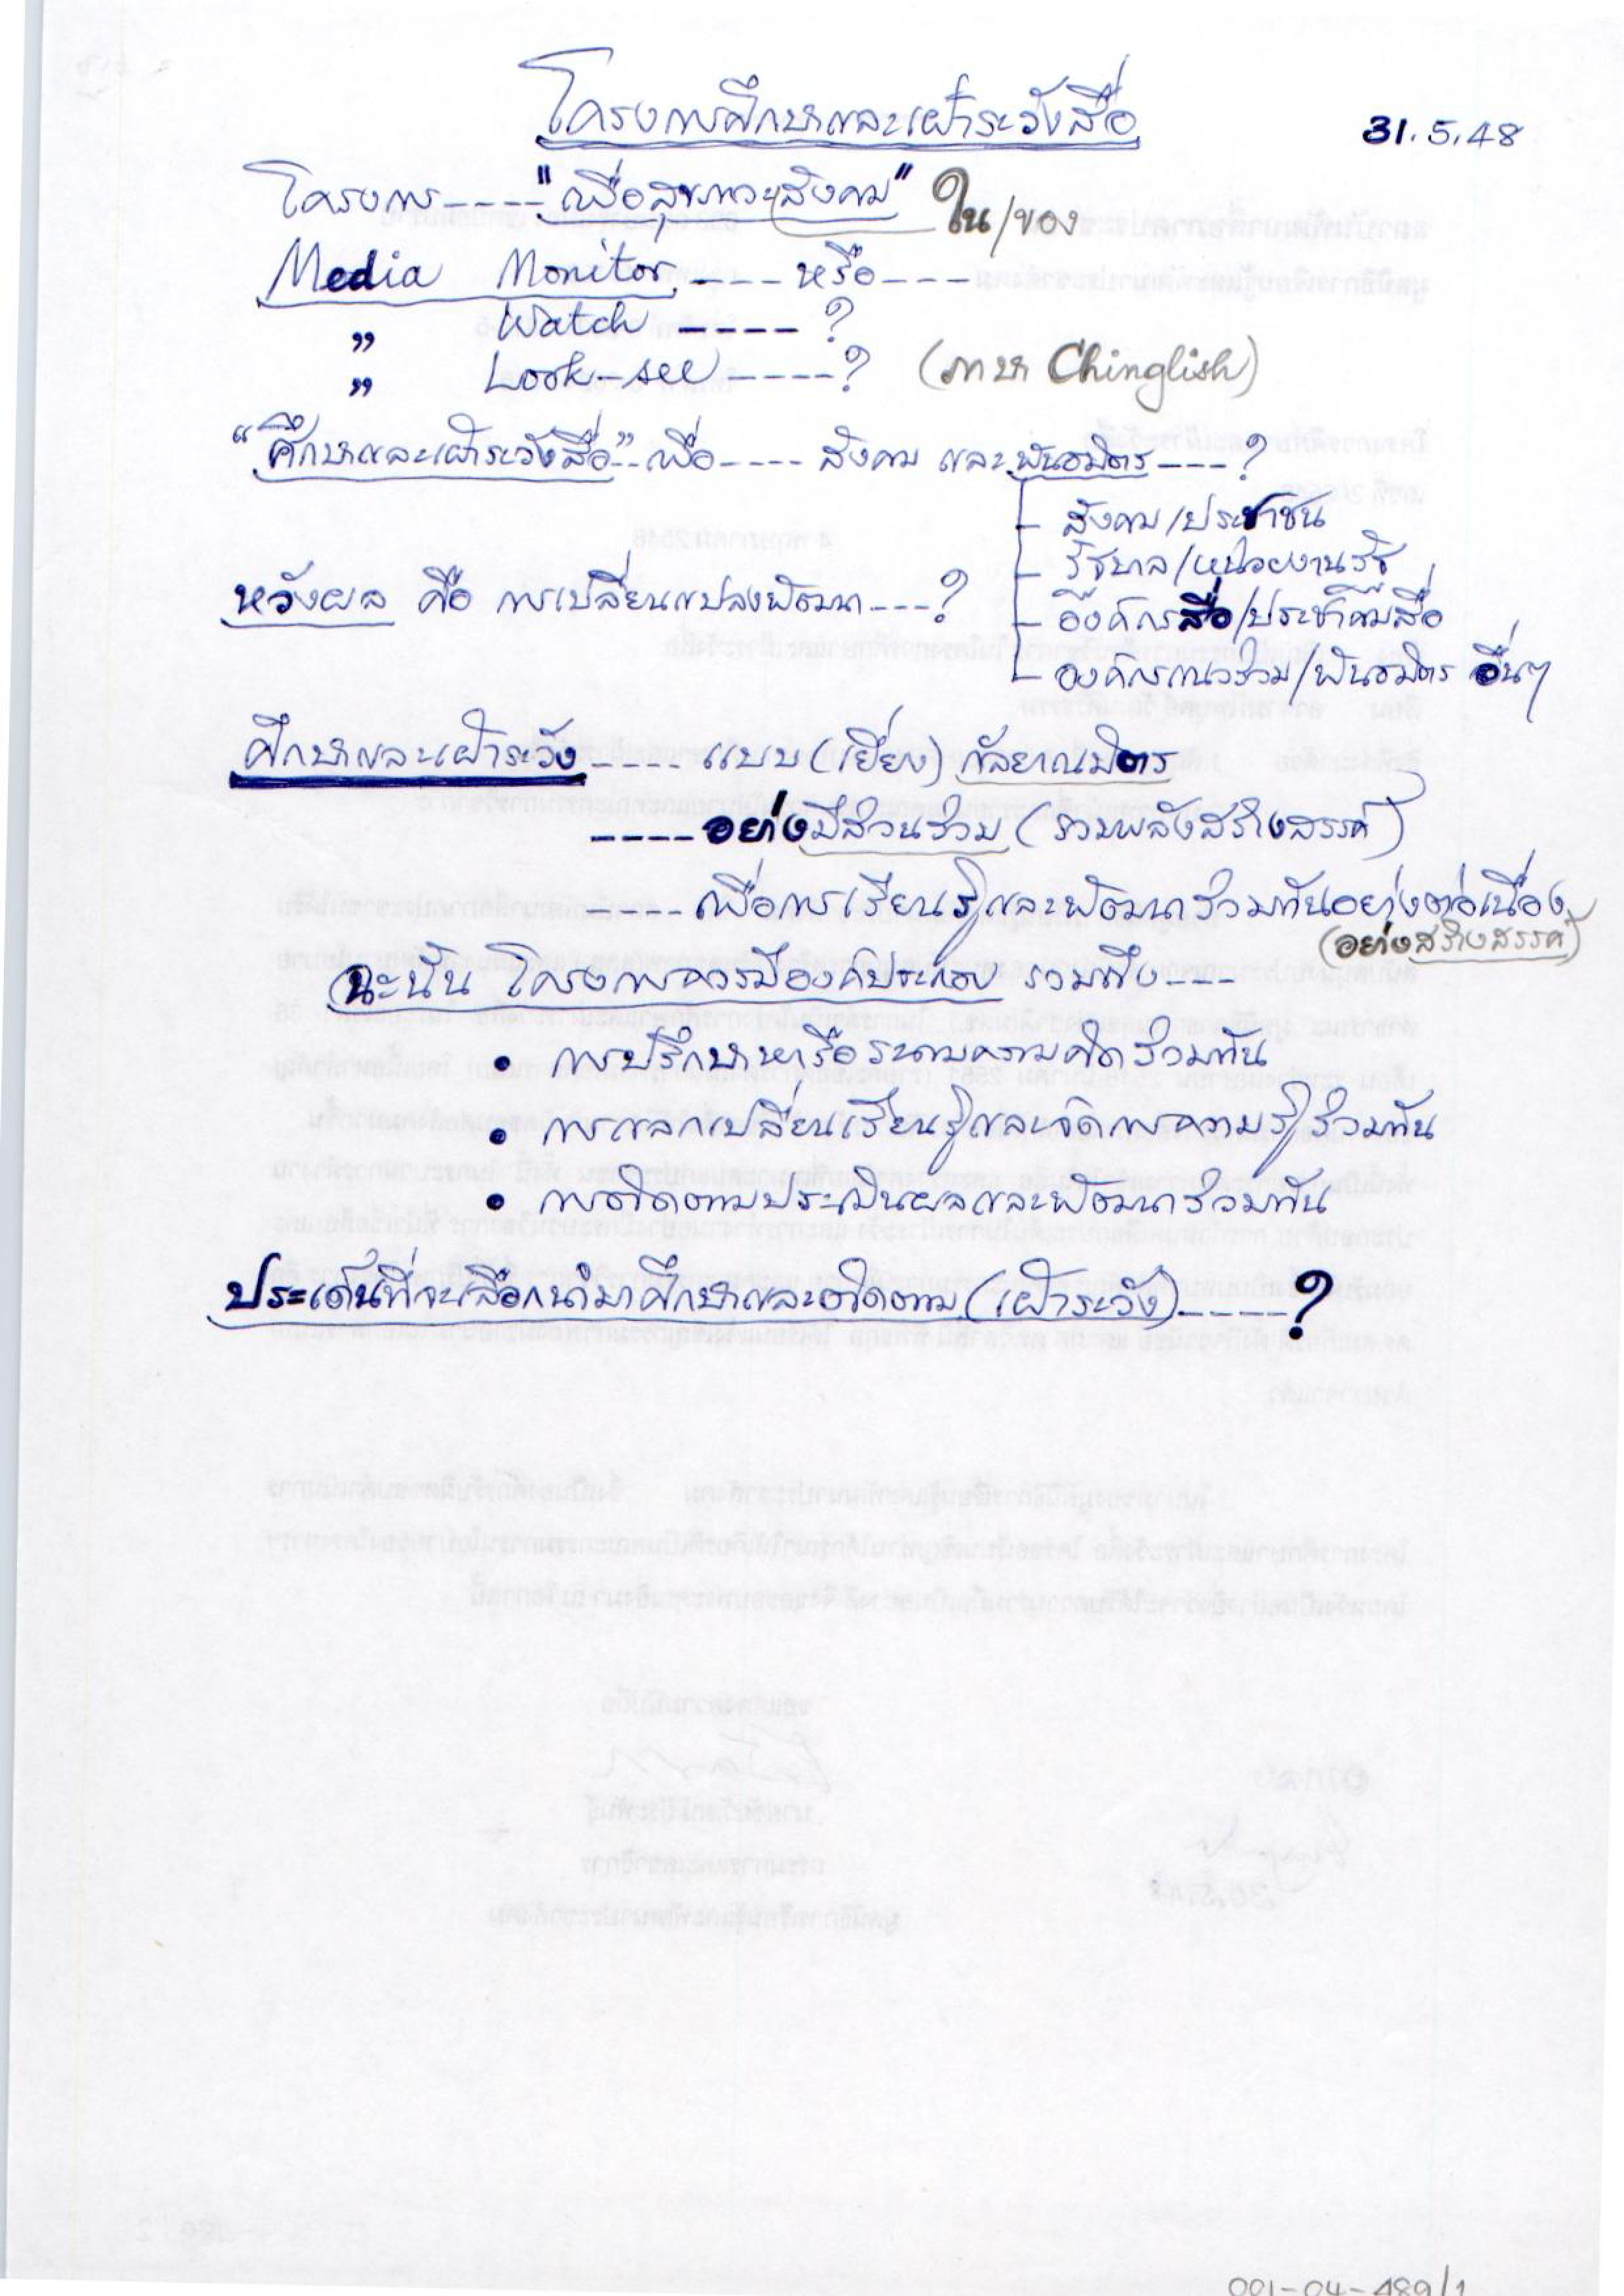 โครงการศึกษาและเฝ้าระวังสื่อ
31.5.48
โครงการ----"เพื่อสุขภาวะสังคม" ใน/ของ
Media Monitor ---- หรือ----
" Watch ----?
" Look-see ----? (ภาษา Chinglish)
"ศึกษาและเฝ้าระวังสื่อ"--เพื่อ---- สังคม และ พันธมิตร----?
- สังคม/ประชาชน
- รัฐบาล/หน่วยงานรัฐ
หวังผล คือ การเปลี่ยนแปลงพัฒนา----?
- องค์กรสื่อ/ประชาคมสื่อ
- องค์กรแนวร่วม/พันธมิตร อื่นๆ
ศึกษาและเฝ้าระวัง---- แบบ (เยี่ยง) กัลยาณมิตร
---- อย่างมีส่วนร่วม (รวมพลังสร้างสรรค์)
---- เพื่อการเรียนรู้และพัฒนาร่วมกันอย่างต่อเนื่อง
(อย่างสร้างสรรค์)
ฉะนั้น โครงการควรมีองค์ประกอบ รวมถึง---
• การปรึกษาหารือระดมความคิดร่วมกัน
• การแลกเปลี่ยนเรียนรู้และจัดการความรู้ร่วมกัน
• การติดตามประเมินผลและพัฒนาร่วมกัน
ประเด็นที่จะเลือกนำมาศึกษาและติดตาม (เฝ้าระวัง)----?
001-04-489/1